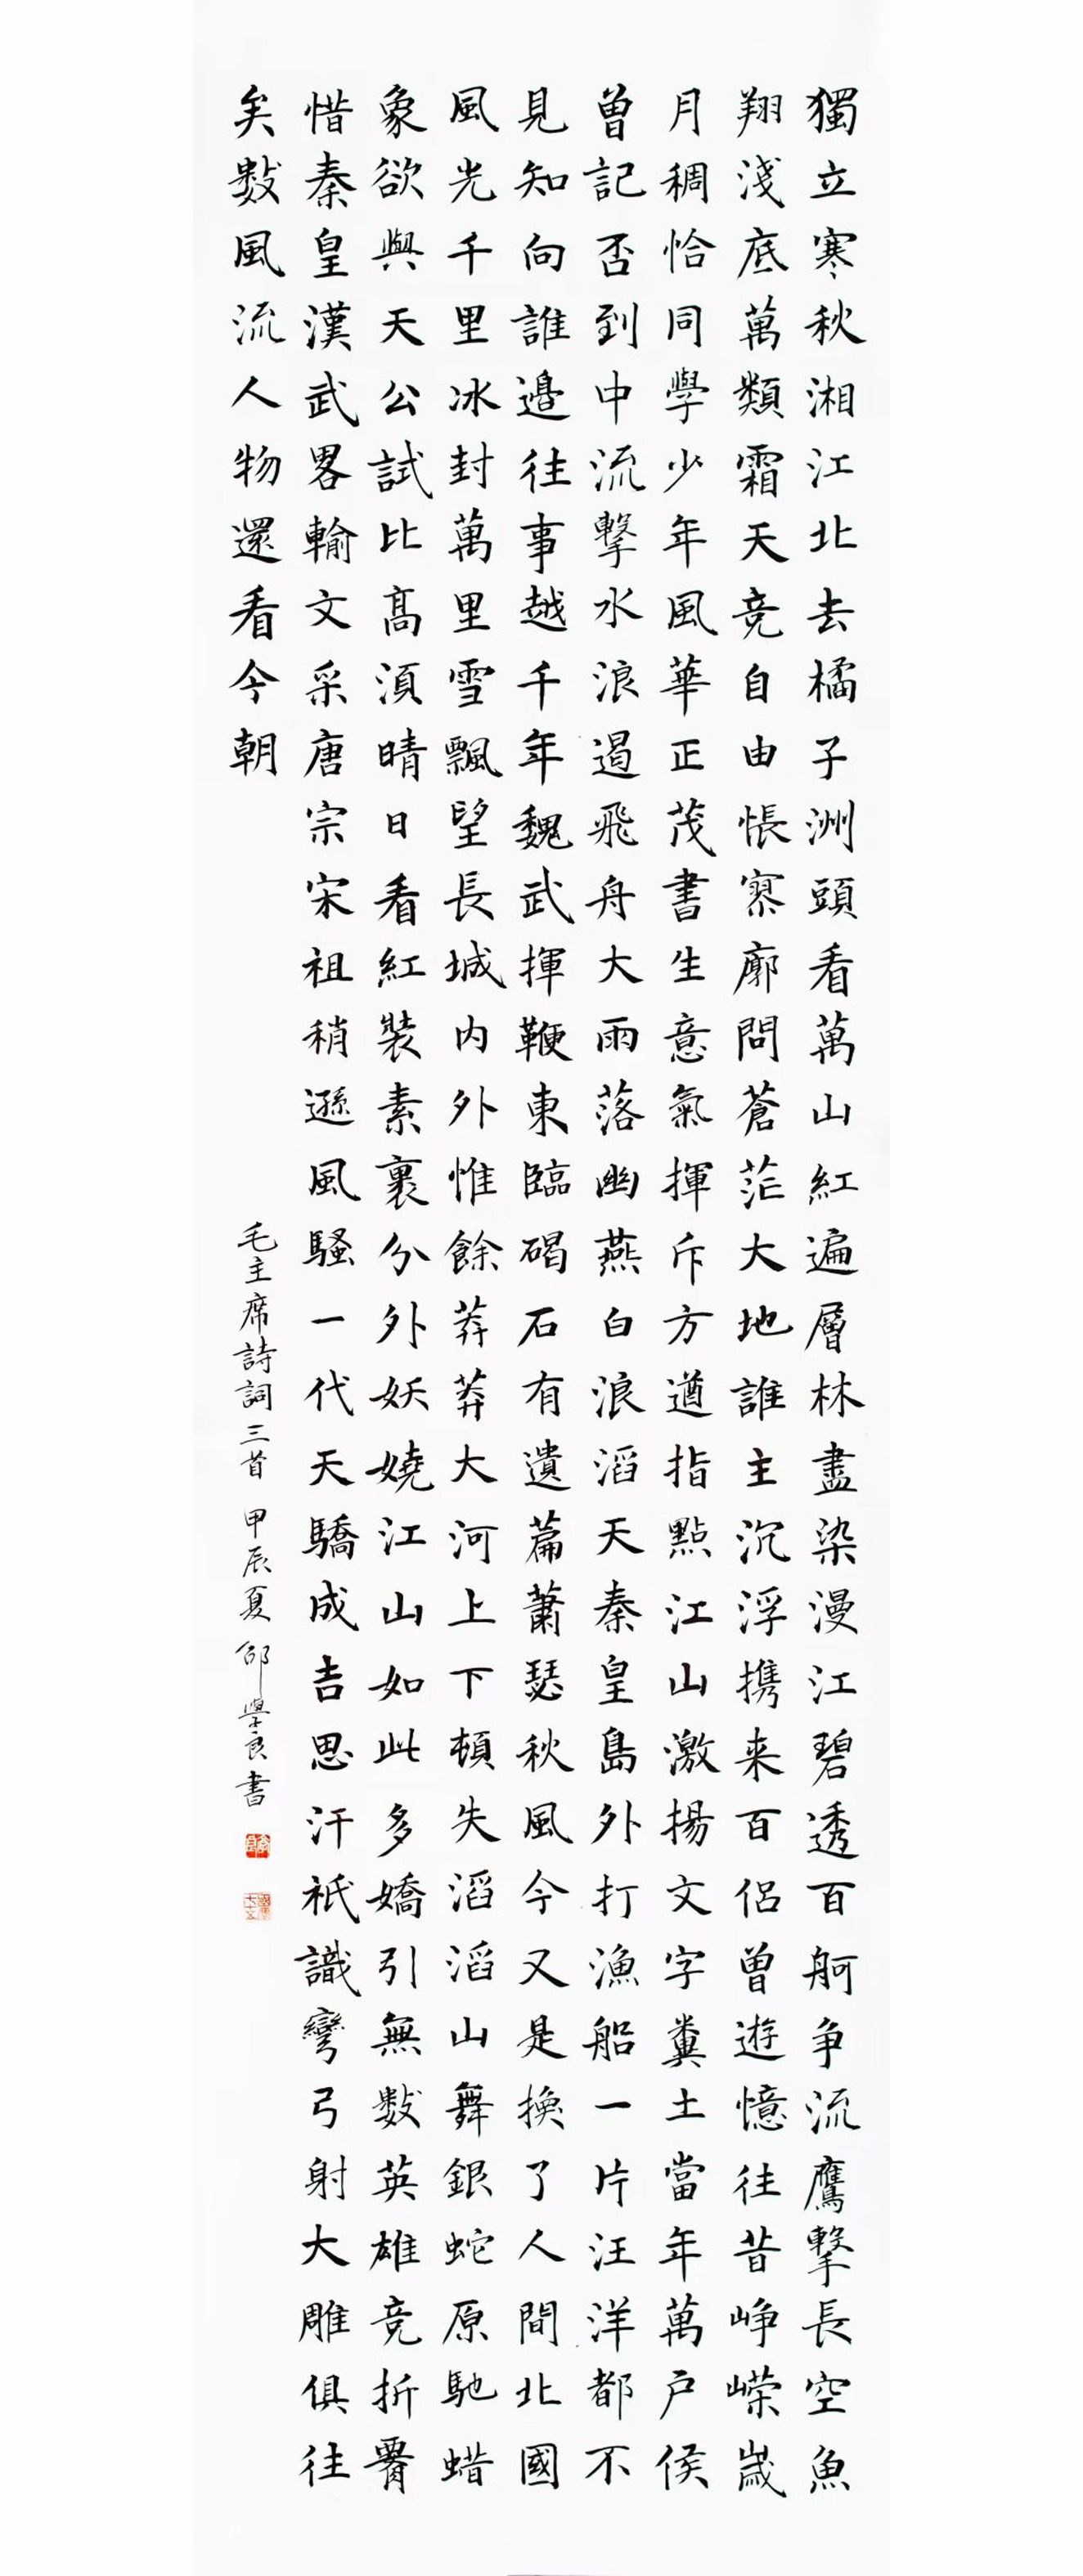 獨立寒秋湘江北去橘子洲頭看萬山紅遍層林盡染漫江碧透百舸争流鷹擊長空魚
翔淺底萬類霜天竞自由悵寥廓問蒼茫大地誰主沉浮携来百侣曾遊憶往昔峥嵘崴
月稠恰同學少年風華正茂書生意氣揮斥方遒指點江山激揚文字糞土當年萬户侯
曾記否到中流擊水浪遏飛舟大雨落幽燕白浪滔天秦皇島外打漁船一片汪洋都不
見知向誰邊往事越千年魏武揮鞭東臨碣石有遺篇蕭瑟秋風今又是換了人間北國
風光千里冰封萬里雪飄望長城内外惟餘莽莽大河上下頓失滔滔山舞銀蛇原馳蜡
象欲與天公試比髙須晴日看紅裝素裹分外妖嬈江山如此多嬌引無數英雄竞折
惜秦皇漢武畧輸文采唐宗宋祖稍遜風騷一代天驕成吉思汗祇識彎弓射大雕俱往
矣數風流人物還看今朝
毛主席詩詞三首 甲辰夏 邵學良書